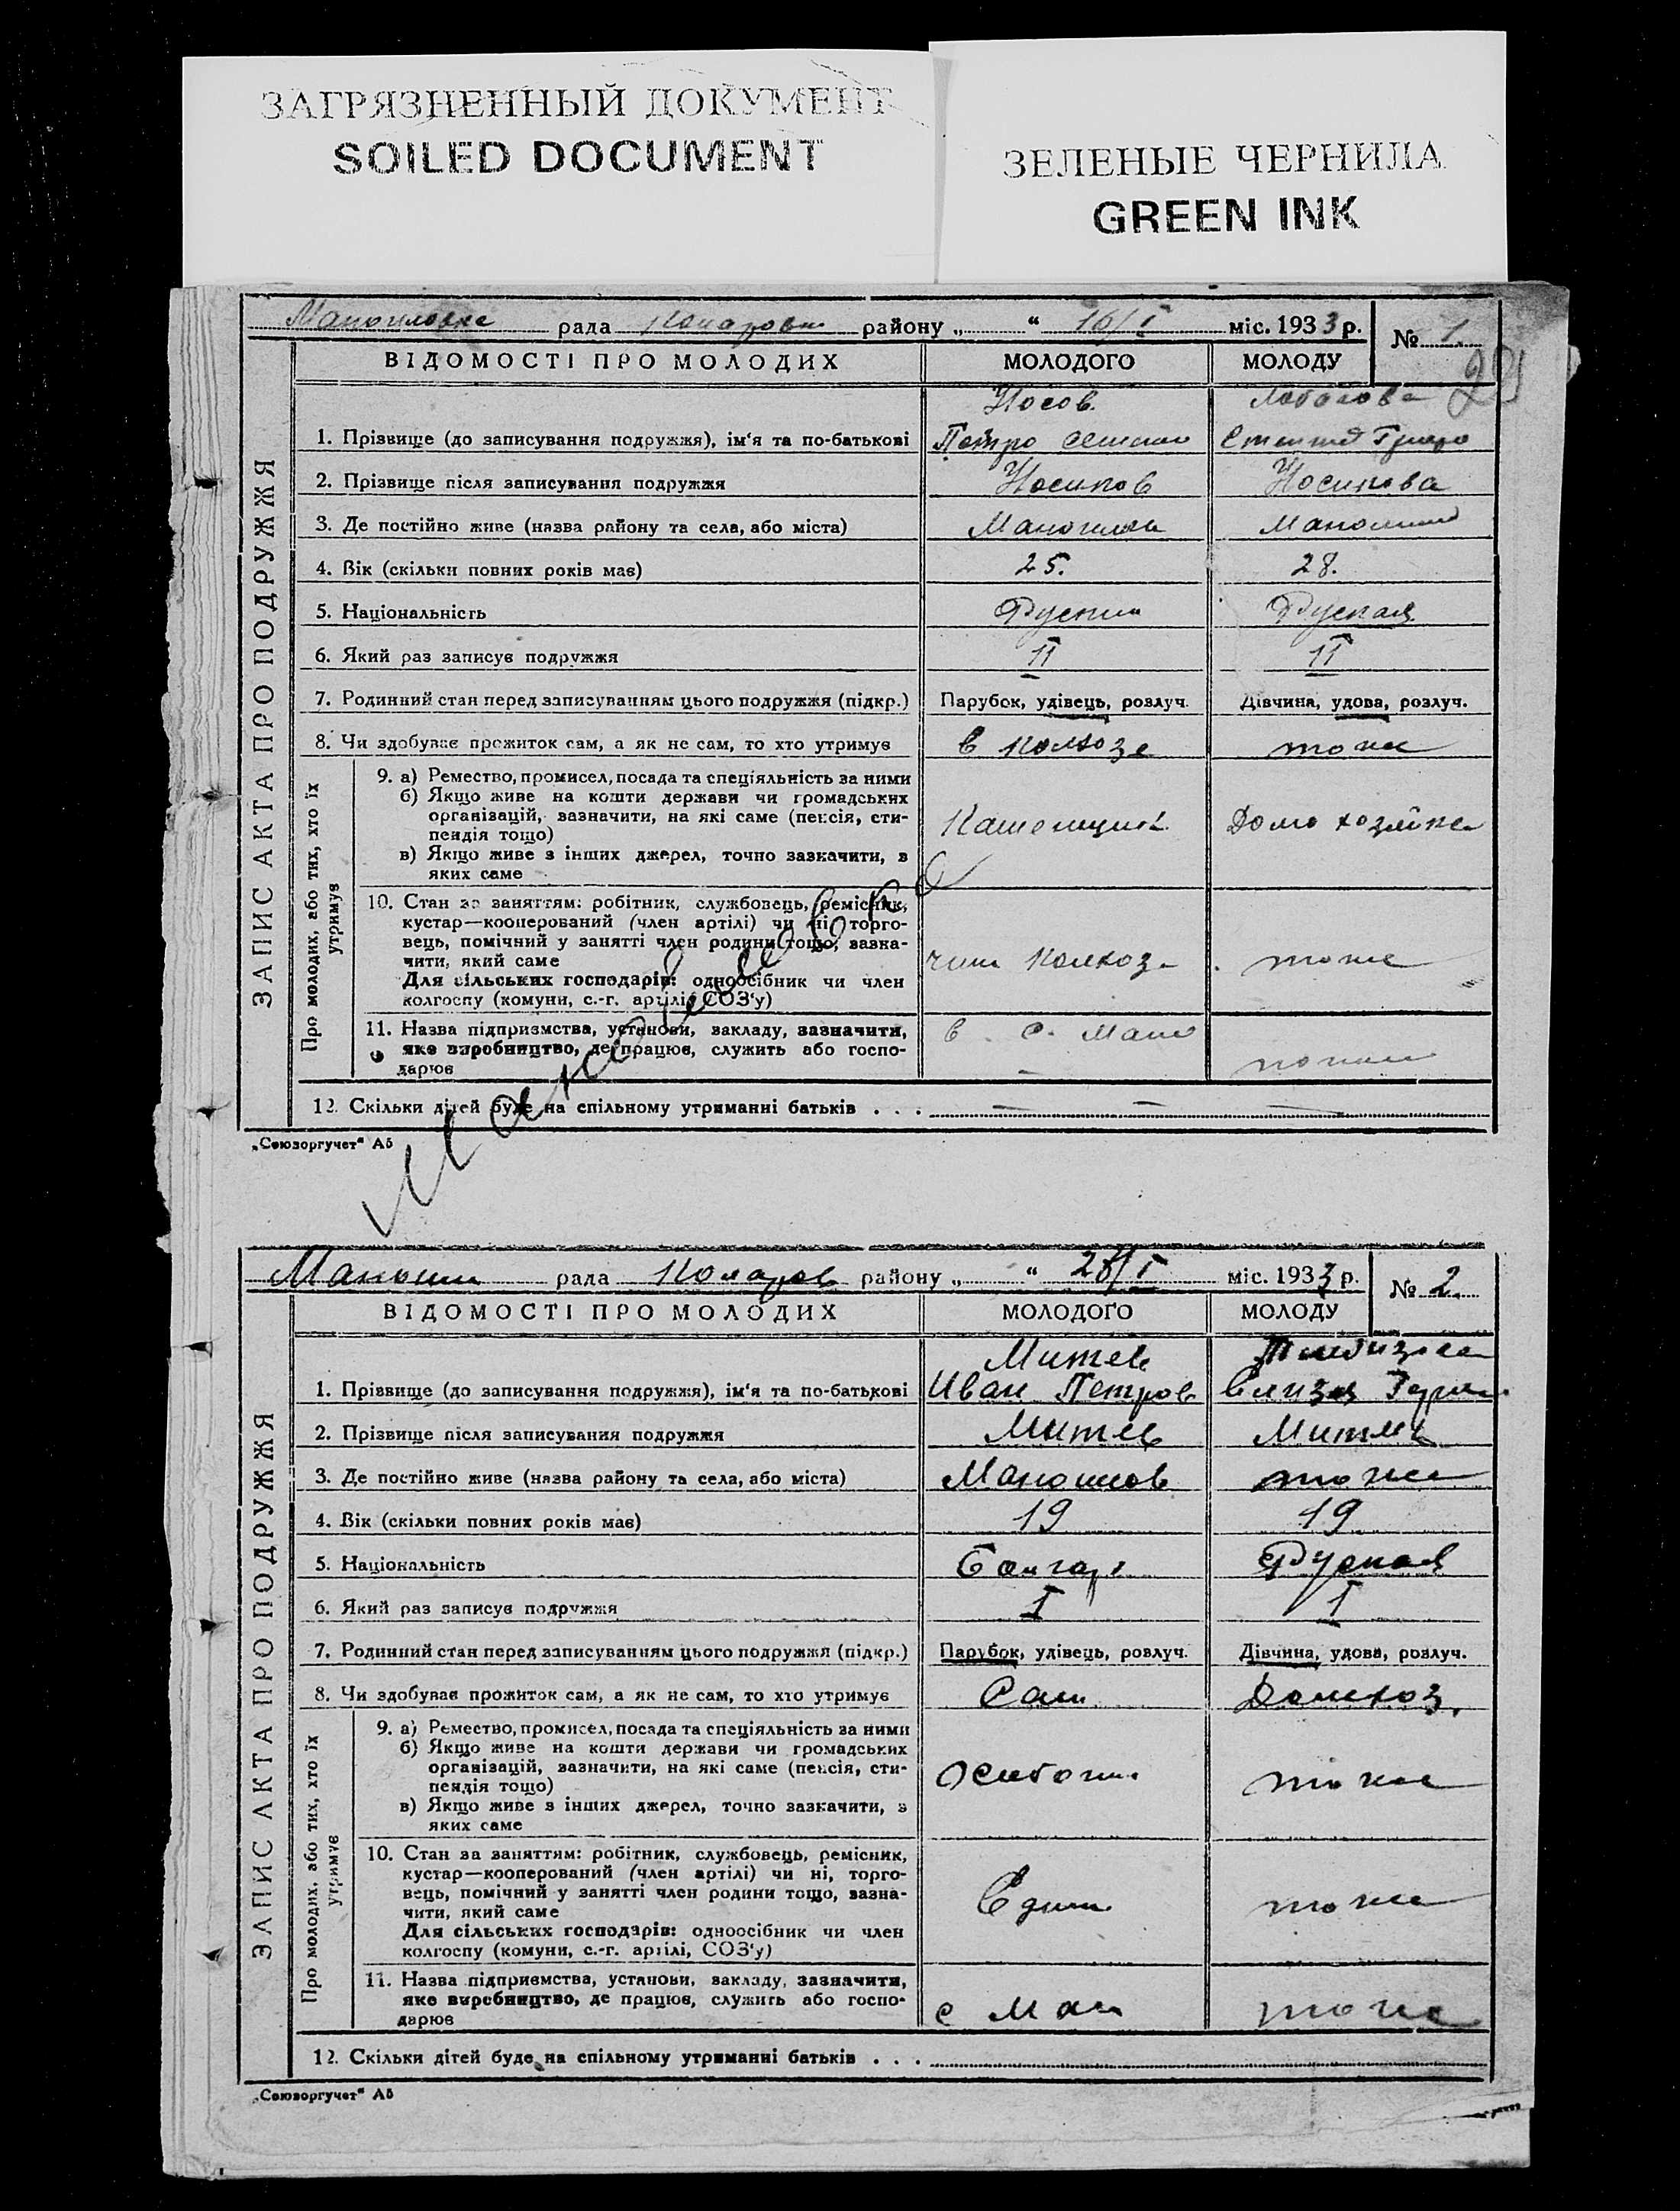 ЗАГРЯЗНЕННЫЙ ДОКУМЕНТ
SOILED DOCUMENT
ЗЕЛЕНЫЕ ЧЕРНИЛА
GREEN INK
рада району „ “ 16/I міс. 1933 р. № 1.
ВІДОМОСТІ ПРО МОЛОДИХ МОЛОДОГО МОЛОДУ
Носов
1. Прізвище (до записування подружжя), ім‘я та по-батькові Петро
2. Прізвище після записування подружжя
3. Де постійно живе (назва району та села, або міста)
4. Вік (скільки повних років має) 25. 28.
5. Національність Руская
6. Який раз записує подружжя II II
7. Родинний стан перед записуванням цього подружжя (підкр.) Парубок, удівець, розлуч. Дівчина, удова, розлуч.
8. Чи здобуває прожиток сам, а як не сам, то хто утримує в колхозе тоже
ЗАПИС АКТА ПРО ПОДРУЖЖЯ
Про молодих, або тих, хто їх
утримує
9. а) Ремество, промисел, посада та спеціяльність за ними
б) Якщо живе на кошти держави чи громадських
організацій, зазначити, на які саме (пенсія, сти-
пендія тощо)
в) Якщо живе з інших джерел, точно зазначити, з
яких саме
Домохозяйка
10. Стан за заняттям: робітник, службовець, ремісник,
кустар—кооперований (член артілі) чи ні, торго-
вець, помічний у занятті член родини тощо, зазна-
чити, який саме
Для сільських господарів: одноосібник чи член
колгоспу (комуни, с.-г. артілі, СОЗ‘у)
член колхоза тоже
11. Назва підприємства, установи, закладу, зазначити,
яке виробництво, де працює, служить або госпо-
дарює
в с. Мано
12. Скільки дітей буде на спільному утриманні батьків . . .
„Союзоргучет“ А5
рада Коларов району „ “ міс. 1933 р. № 2.
ВІДОМОСТІ ПРО МОЛОДИХ МОЛОДОГО МОЛОДУ
Митев
1. Прізвище (до записування подружжя), ім‘я та по-батькові Иван Петров
2. Прізвище після записування подружжя Митев Митев
3. Де постійно живе (назва району та села, або міста) тоже
4. Вік (скільки повних років має) 19 19
5. Національність Болгар Руская
6. Який раз записує подружжя I I
7. Родинний стан перед записуванням цього подружжя (підкр.) Парубок, удівець, розлуч. Дівчина, удова, розлуч.
8. Чи здобуває прожиток сам, а як не сам, то хто утримує Сам Домхоз.
ЗАПИС АКТА ПРО ПОДРУЖЖЯ
Про молодих, або тих, хто їх
утримує
9. а) Ремество, промисел, посада та спеціяльність за ними
б) Якщо живе на кошти держави чи громадських
організацій, зазначити, на які саме (пенсія, сти-
пендія тощо)
в) Якщо живе з інших джерел, точно зазначити, з
яких саме
тоже
10. Стан за заняттям: робітник, службовець, ремісник,
кустар—кооперований (член артілі) чи ні, торго-
вець, помічний у занятті член родини тощо, зазна-
чити, який саме
Для сільських господарів: одноосібник чи член
колгоспу (комуни, с.-г. артілі, СОЗ‘у)
тоже
11. Назва підприємства, установи, закладу, зазначити,
яке виробництво, де працює, служить або госпо-
дарює
с Ман тоже
12. Скільки дітей буде на спільному утриманні батьків . . .
„Союзоргучет“ А5